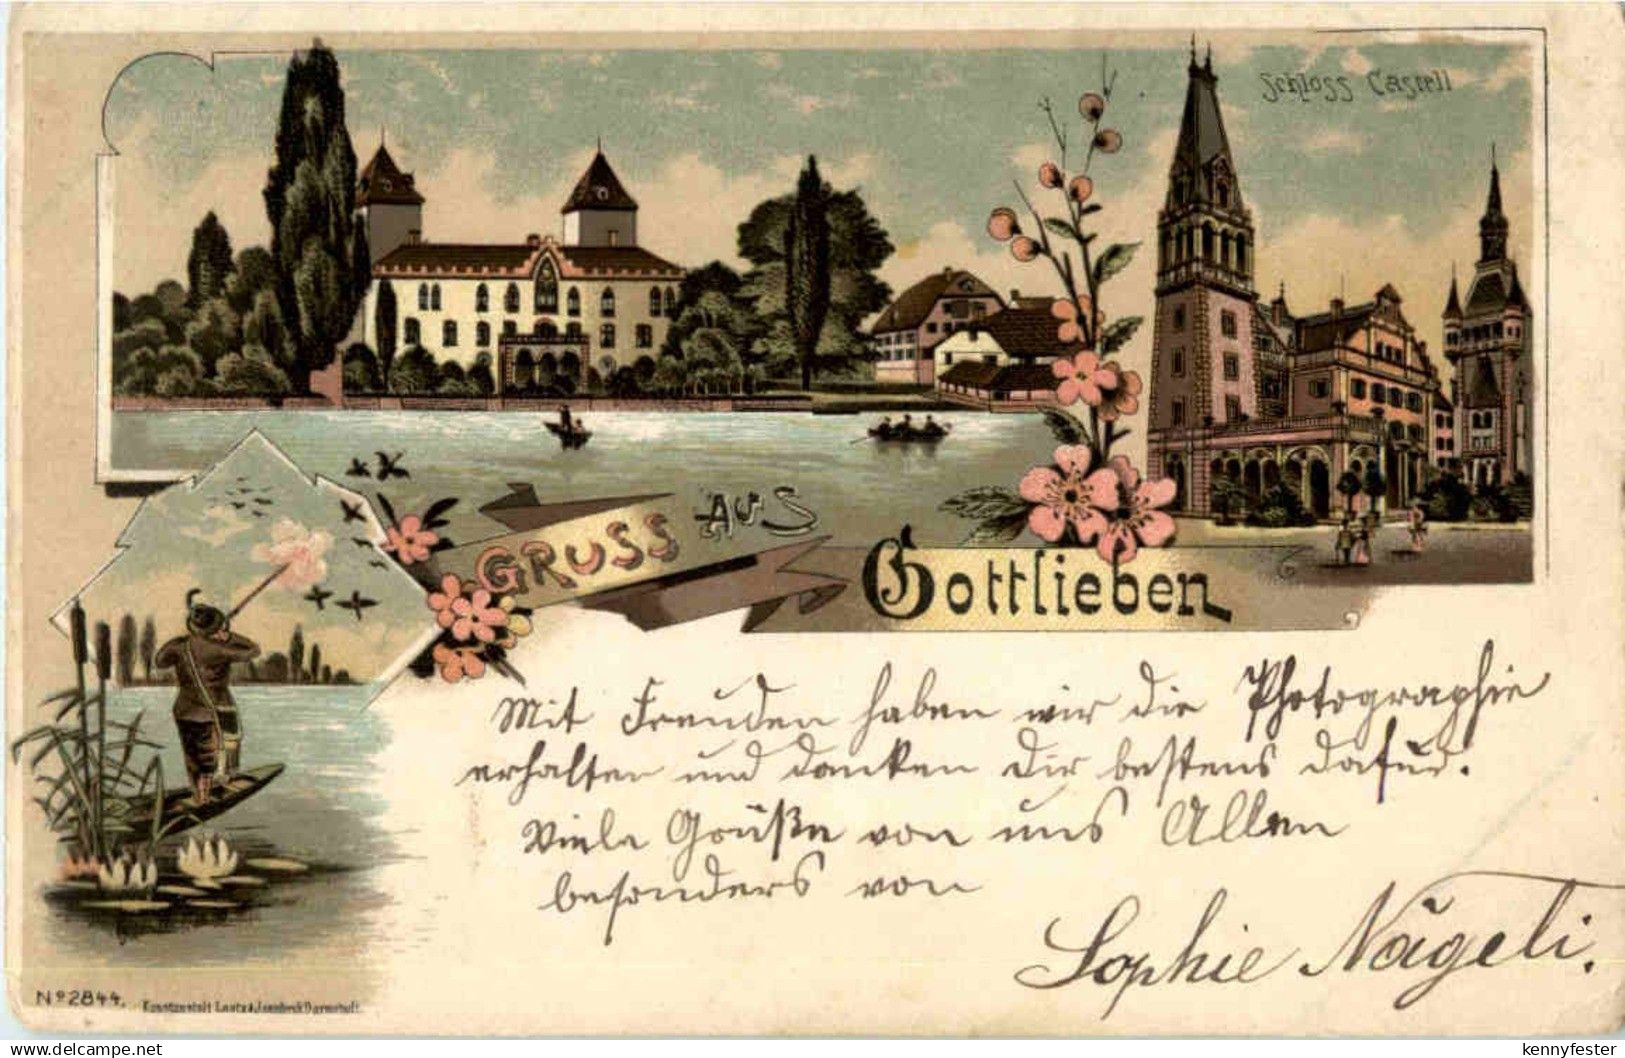 Schloss Castell
GRUSS AUS
Gottlieben
Mit Freuden haben wir die Photographie
erhalten und danken Dir bestens dafür.
Viele Grüße von uns Allen
besonders von
Sophie Nägeli.
Nº 2844.
Kunstanstalt Lautz & Isenbeck Darmstadt.
www.delcampe.net
kennyfester